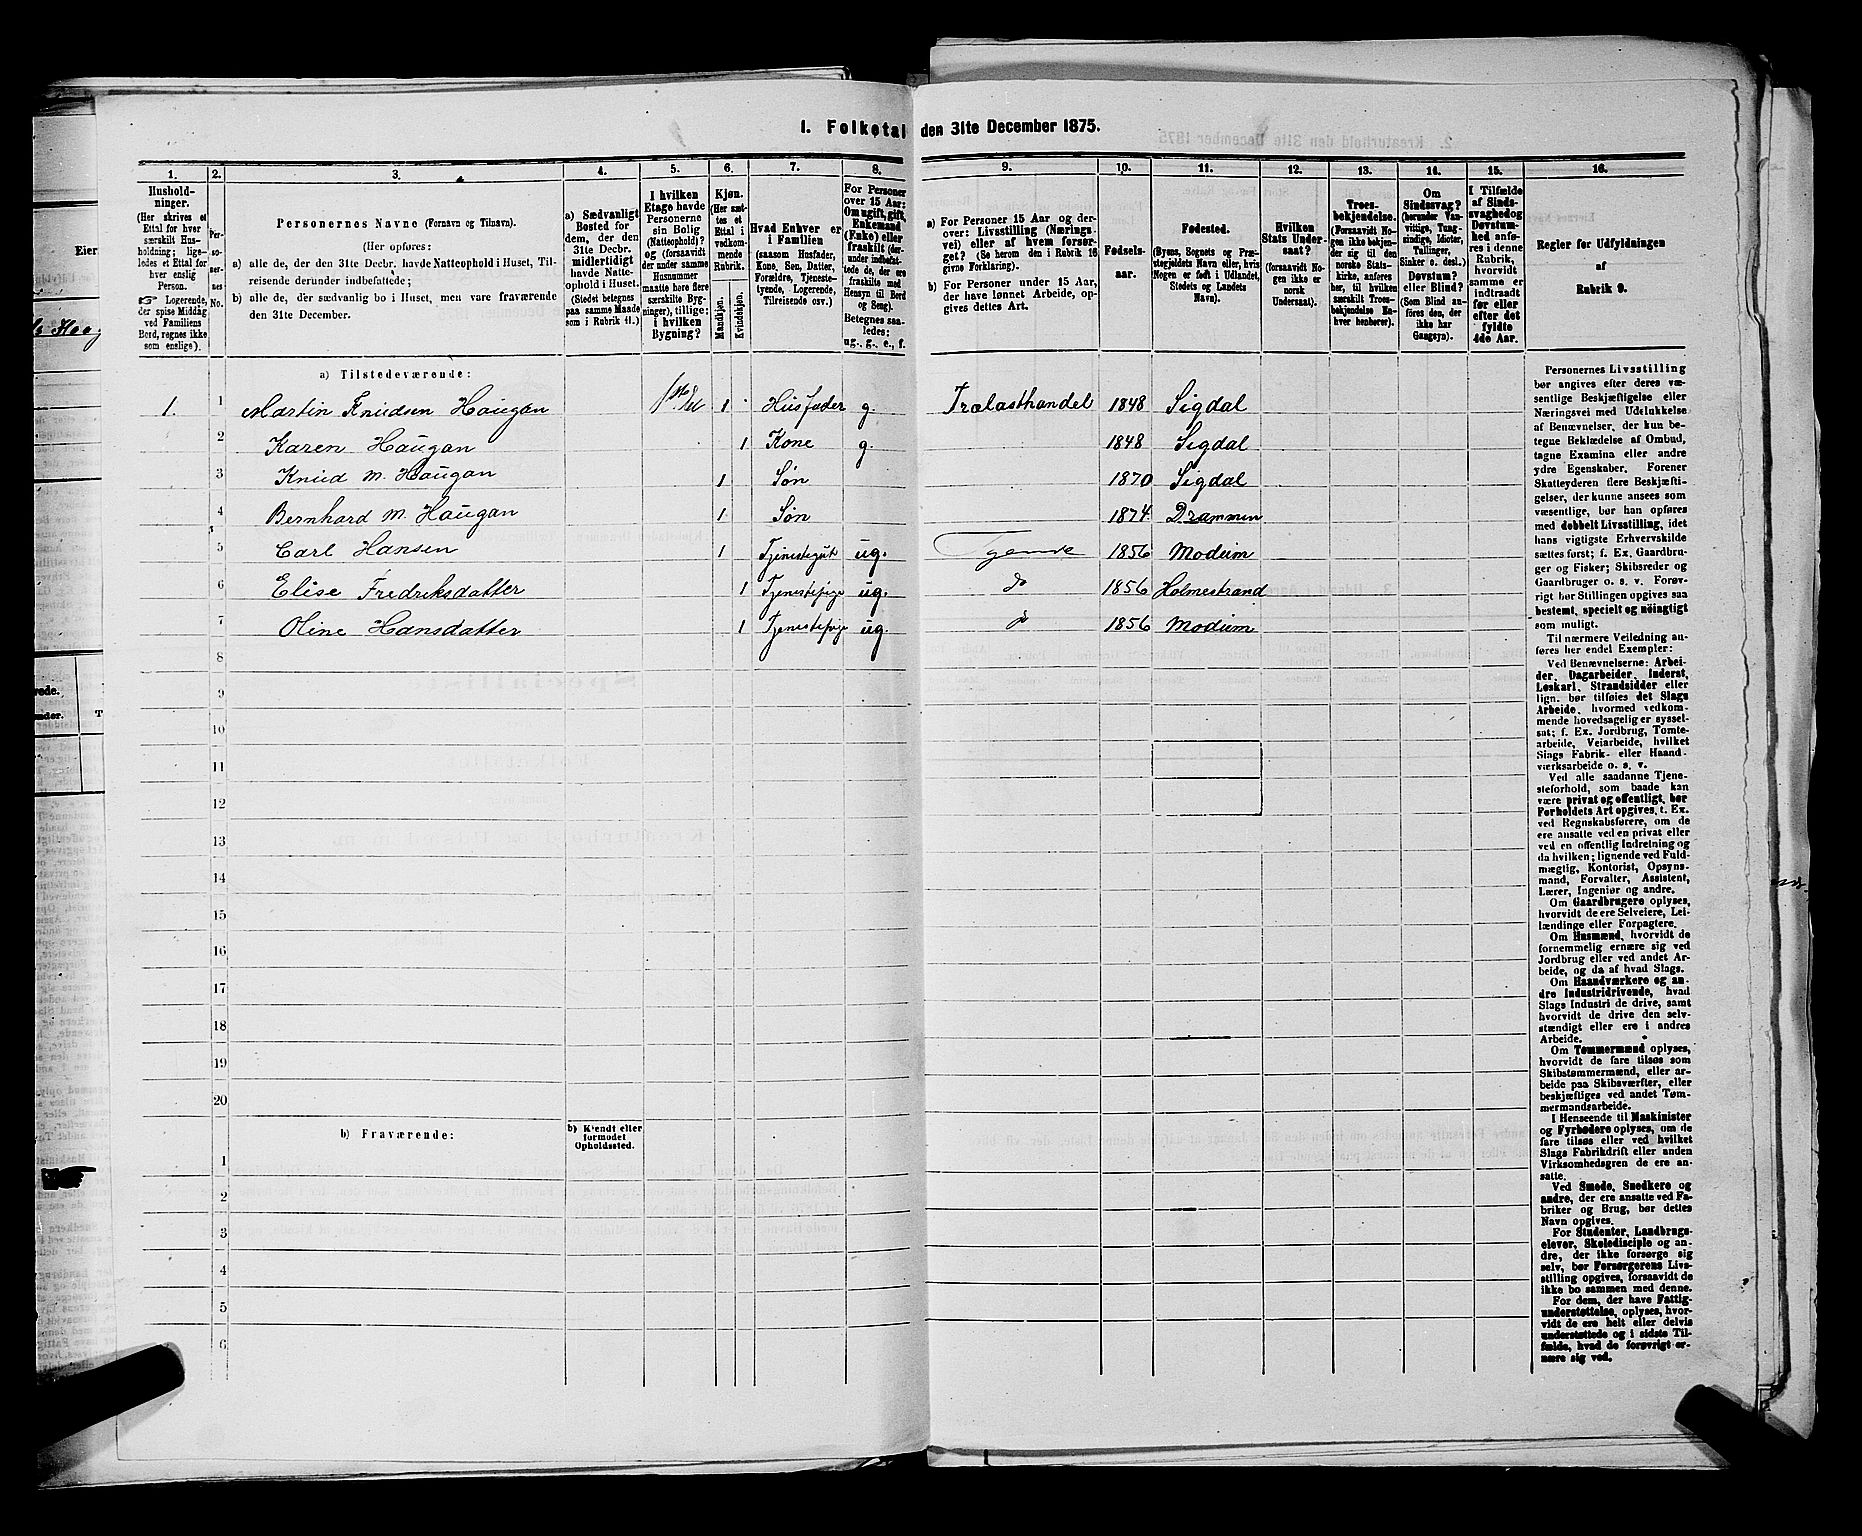 1. Folketal den 31te December 1875.
1. 2. 3. 4. 5. 6. 7. 8. 9. 10. 11. 12. 13. 14. 15. 16.
Hushold-
ninger.
(Her skrives et
Ettal for hver
særskilt Hus-
holdning; lige-
ledes et Ettal for
hver enslig
Person.
☞ Logerende,
der spise Middag
ved Familiens
Bord, regnes ikke
som enslige).
Per-
so-
ner-
nes
No.
Personernes Navne (Fornavn og Tilnavn).
(Her opføres:
a) alle de, der den 31te Decbr. havde Natteophold i Huset, Til-
reisende derunder indbefattede;
b) alle de, der sædvanlig bo i Huset, men vare fraværende
den 31te December.
a) Sædvanligt
Bosted for
dem, der den
31te Decbr.
midlertidigt
havde Natte-
ophold i Huset.
(Stedet betegnes
paa samme Maade
som i Rubrik 11.)
I hvilken
Etage havde
Personerne
sin Bolig
(Natteophold)?
og (forsaavidt
der under samme
Husnummer
maatte høre flere
særskilte Byg-
ninger), tillige:
i hvilken
Bygning?
Kjøn.
(Her sæt-
tes et
Ettal i
vedkom-
mende
Rubrik.
Mandkjøn.
Kvindekjøn.
Hvad Enhver er
i Familien
(saasom Husfader,
Kone, Søn, Datter,
Forældre, Tjeneste-
tyende, Logerende,
Tilreisende osv.)
For Personer
over 15 Aar:
Om ugift, gift,
Enkemand
(Enke) eller
fraskilt (der-
under indbefat-
tede de, der ere
fraskilte med
Hensyn til Bord
og Seng).
Betegnes saa-
ledes:
ug., g., e., f.
a) For Personer 15 Aar og der-
over: Livsstilling (Nærings-
vei) eller af hvem forsør-
get? (Se herom den i Rubrik 16
givne Forklaring).
b) For Personer under 15 Aar,
der have lønnet Arbeide, op-
gives dettes Art.
Fødsels-
aar.
Fødested.
(Byens, Sognets og Præ-
stegjeldets Navn eller, hvis
Nogen er født i Udlandet,
Stedets og Landets
Navn).
Hvilken
Stats Under-
saat?
(forsaavidt No-
gen ikke er
norsk
Undersaat).
Troes-
bekjendelse.
(Forsaavidt No-
gen ikke bekjen-
der sig til den
norske Stats-
kirke, anføres
her, til hvilken
særskilt Troes-
bekjendelse En-
hver henhører).
Om
Sindssvag?
(herunder Van-
vittige, Tung-
sindige, Idioter,
Tullinger,
Sinker o. desl.)
Døvstum?
eller Blind?
(Som Blind an-
føres den, der
ikke har
Gangsyn).
I Tilfælde
af Sinds-
svaghed og
Døvstum-
hed anfø-
res i denne
Rubrik,
hvorvidt
samme er
indtraadt
før eller
efter det
fyldte
4de Aar.
Regler for Udfyldningen
af
Rubrik 9.
a) Tilstedeværende:
1. 1 Martin Knudsen Haugan 1ste Et 1 Husfader g. Trælasthandel 1848 Sigdal
2 Karen Haugan 1 Kone g. 1848 Sigdal
3 Knud M. Haugan 1 Søn 1870 Sigdal
4 Bernhard M. Haugan 1 Søn 1874 Drammen
5 Carl Hansen 1 Tjenestegut ug. Tyende 1856 Modum
6 Elise Fredriksdatter 1 Tjenestepige ug. do 1856 Holmestrand
7 Oline Hansdatter 1 Tjenestepige ug. do 1856 Modum
8
9
10
11
12
13
14
15
16
17
18
19
20
b) Fraværende:
b) Kjendt eller
formodet
Opholdssted.
1
2
3
4
5
6
Personernes Livsstilling
bør angives efter deres væ-
sentlige Beskjæftigelse eller
Næringsvei med Udelukkelse
af Benævnelser, der kun be-
tegne Beklædelse af Ombud,
tagne Examina eller andre
ydre Egenskaber. Forener
Skatteyderen flere Beskjæfti-
gelser, der kunne ansees som
væsentlige, bør han opføres
med dobbelt Livsstilling, idet
hans vigtigste Erhvervskilde
sættes først; f. Ex. Gaardbru-
ger og Fisker; Skibsreder og
Gaardbruger o. s. v. Forøv-
rigt bør Stillingen opgives saa
bestemt, specielt og nøiagtigt
som muligt.
Til nærmere Veiledning an-
føres her endel Exempler:
Ved Benævnelserne: Arbei-
der, Dagarbeider, Inderst,
Løskarl, Strandsidder eller
lign. bør tilføies det Slags
Arbeide, hvormed vedkom-
mende hovedsagelig er syssel-
sat; f. Ex. Jordbrug, Tomte-
arbeide, Veiarbeide, hvilket
Slags Fabrik- eller Haand-
værksarbeide o. s. v.
Ved alle saadanne Tjene-
steforhold, som baade kan
være privat og offentligt, bør
Forholdets Art opgives, t. Ex.
ved Regnskabsførere, om de
ere ansatte ved en privat eller
ved en offentlig Indretning og
da hvilken; lignende ved Fuld-
mægtig, Kontorist, Opsyns-
mand, Forvalter, Assistent,
Lærer, Ingeniør og andre.
Om Gaardbrugere oplyses,
hvorvidt de ere Selveiere, Lei-
lændinge eller Forpagtere.
Om Husmænd, hvorvidt de
fornemmelig ernære sig ved
Jordbrug eller ved andet Ar-
beide, og da af hvad Slags.
Om Haandværkere og an-
dre Industridrivende, hvad
Slags Industri de drive, samt
hvorvidt de drive den selv-
stændigt eller ere i andres
Arbeide.
Om Tømmermænd oplyses,
hvorvidt de fare tilsøs som
Skibstømmermænd, eller ar-
beide paa Skibsværfter, eller
beskjæftiges ved andet Tøm-
mermandsarbeide.
I Henseende til Maskinister
og Fyrbødere oplyses, om de
fare tilsøs eller ved hvilket
Slags Fabrikdrift eller anden
Virksomhedsgren de ere an-
satte.
Ved Smede, Snedkere og
andre, der ere ansatte ved Fa-
briker og Brug, bør dettes
Navn opgives.
For Studenter, Landbrugs-
elever, Skoledisciple og an-
dre, der ikke forsørge sig
selv, bør Forsørgerens Livs-
stilling opgives, forsaavidt de
ikke bo sammen med denne.
For dem, der have Fattig-
understøttelse, oplyses, hvor-
vidt de ere helt eller delvis
understøttede og i sidste Til-
fælde, hvad de forøvrigt er-
nære sig ved.